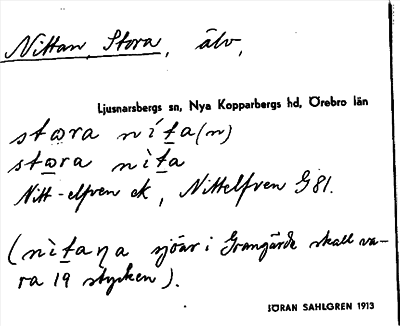 Nittan, Stora, älv,
Ljusnarsbergs sn, Nya Kopparbergs hd, Örebro län
stœra níta(n)
stœra nìta
Nitt-elfven ek, Nittelfven G81.
(nìtaɳa sjöar i Grangärde skall va-
ra 19 stycken).
JÖRAN SAHLGREN 1913